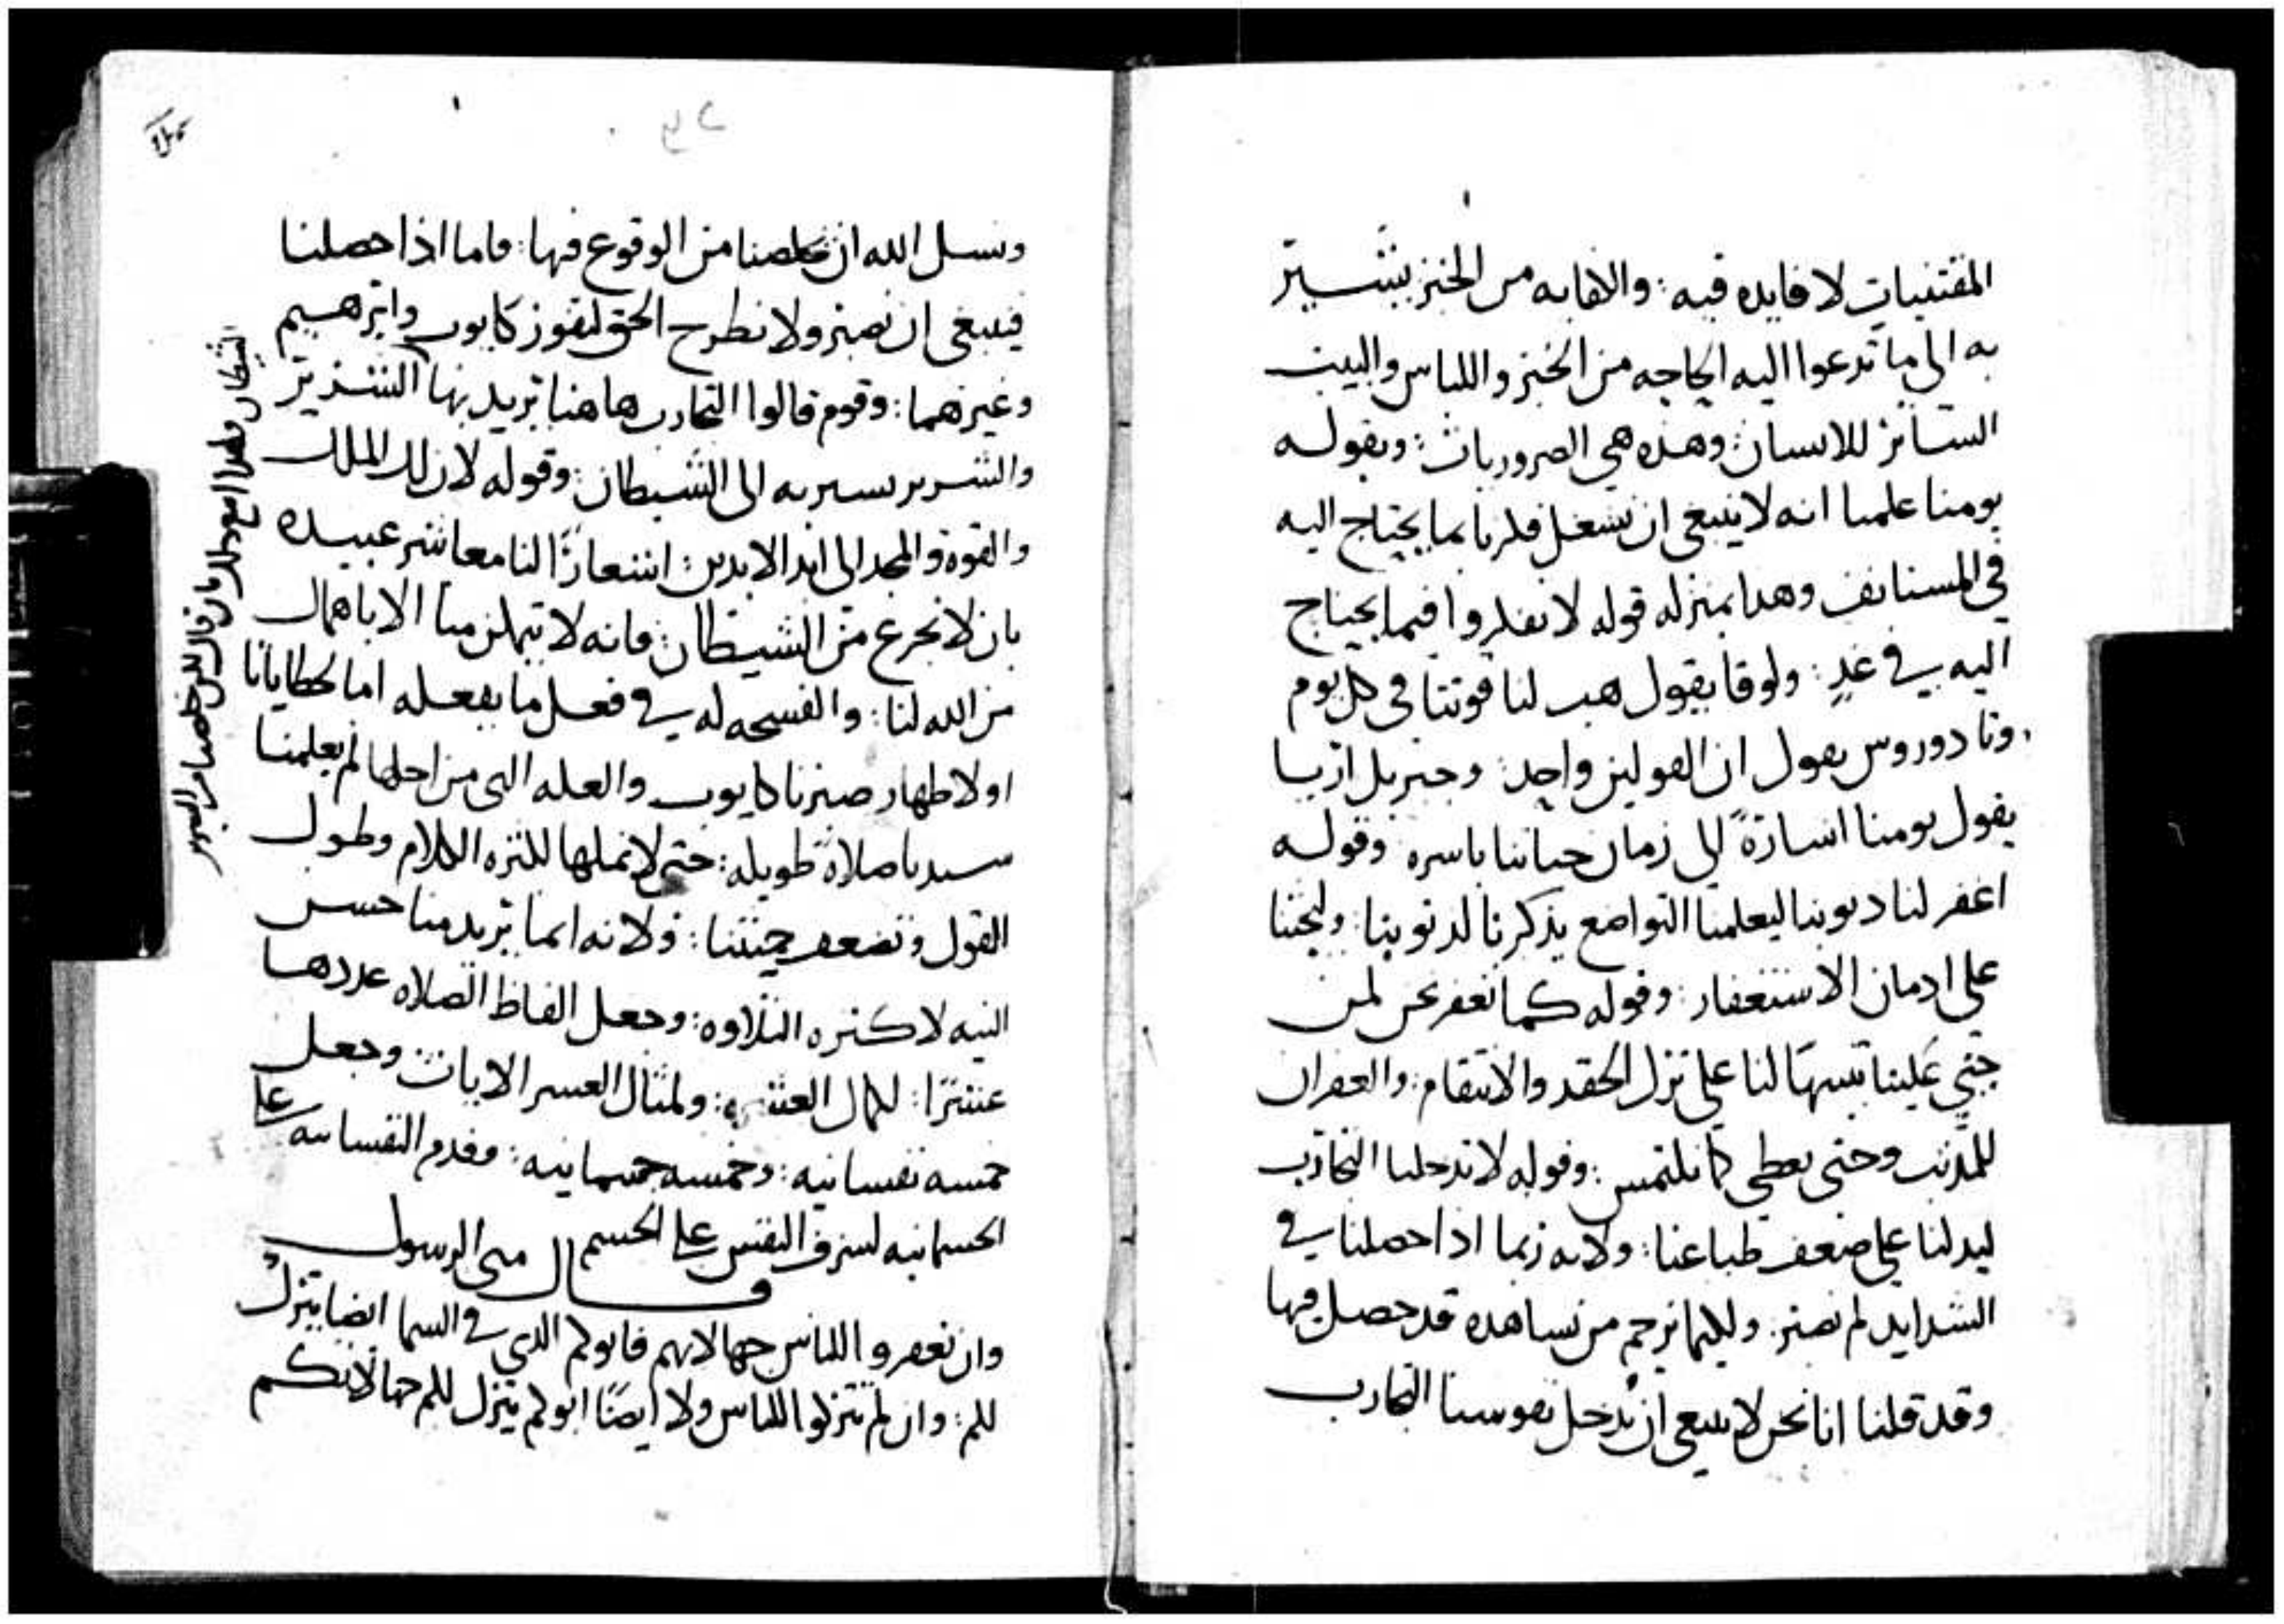 المقتنيات لا فايده فيه: والاهابه من الخبز يشير
به الى ما تدعوا اليه الحاجه من الخبز واللباس والبيت
الساتر للانسان: وهذه هي الضروريات: وبقوله
يومنا علمنا انه لا ينبغي ان نشغل فكرنا بما يحتاج اليه
في المستانف وهذا بمنزله قوله لا تفكروا فيما يحتاج
اليه في غدٍ: ولوقا يقول هب لنا قوتنا في كل يوم
وثادوروس يقول ان القولين واحد: وجبريل
يقول يومنا اشارةً الى زمان حياتنا باسره وقوله
اغفر لنا ديوننا ليعلمنا التواضع بذكرنا لذنوبنا: وليحثنا
على ادمان الاستغفار: وقوله كما نغفر نحن لمن
جنى علينا تنبيهًا لنا على ترك الحقد والانتقام: والغفران
للمذنب وحتى نعطى كما نلتمس: وقوله لا تدخلنا التجارب
ليدلنا على ضعف طباعنا: ولانه ربما اذا حصلنا في
الشدايد لم نصبر. ولكيما نرحم من نشاهده قد حصل فيها
وقد قلنا انا نحن لا ينبغي ان ندخل نفوسنا التجارب
ونسل الله ان يخلصنا من الوقوع فيها: فاما اذا حصلنا
فينبغي ان نصبر ولا نطرح الحق لنفوز كايوب وابرهيم
وغيرهما: وقوم قالوا التجارب هاهنا يريد بها الشرير
والشرير يشير به الى الشيطان: وقوله لان لك الملك
والقوة والمجد الى ابد الابدين: اشعارًا لنا معاشر عبيده
بان لا نجزع من الشيطان: فانه لا يتمكن منا الا باهمال
من الله لنا: والفسحه له في فعل ما يفعله اما لخطايانا
او لاظهار صبرنا كايوب والعله التي من اجلها لم يعلمنا
سيدنا صلاة طويله: حتى لا نملها لكثره الكلام وطول
القول وتضعف: ولانه انما يريد منا حسن
النيه لا كثره التلاوه: وجعل الفاظ الصلاه عددها
عشرًا: لكمال العشره: ولمثال العشر الايات: وجعل
خمسه نفسانيه: وخمسه جسمانيه: وقدم النفسانيه على
الجسمانيه لشرف النفس على الجسم قال متى الرسول
وان تغفروا للناس جهالاتهم فابوكم الذي في السما ايضا يترك
لكم: وان لم تتركوا للناس ولا ايضًا ابوكم يترك لكم جهالاتكم